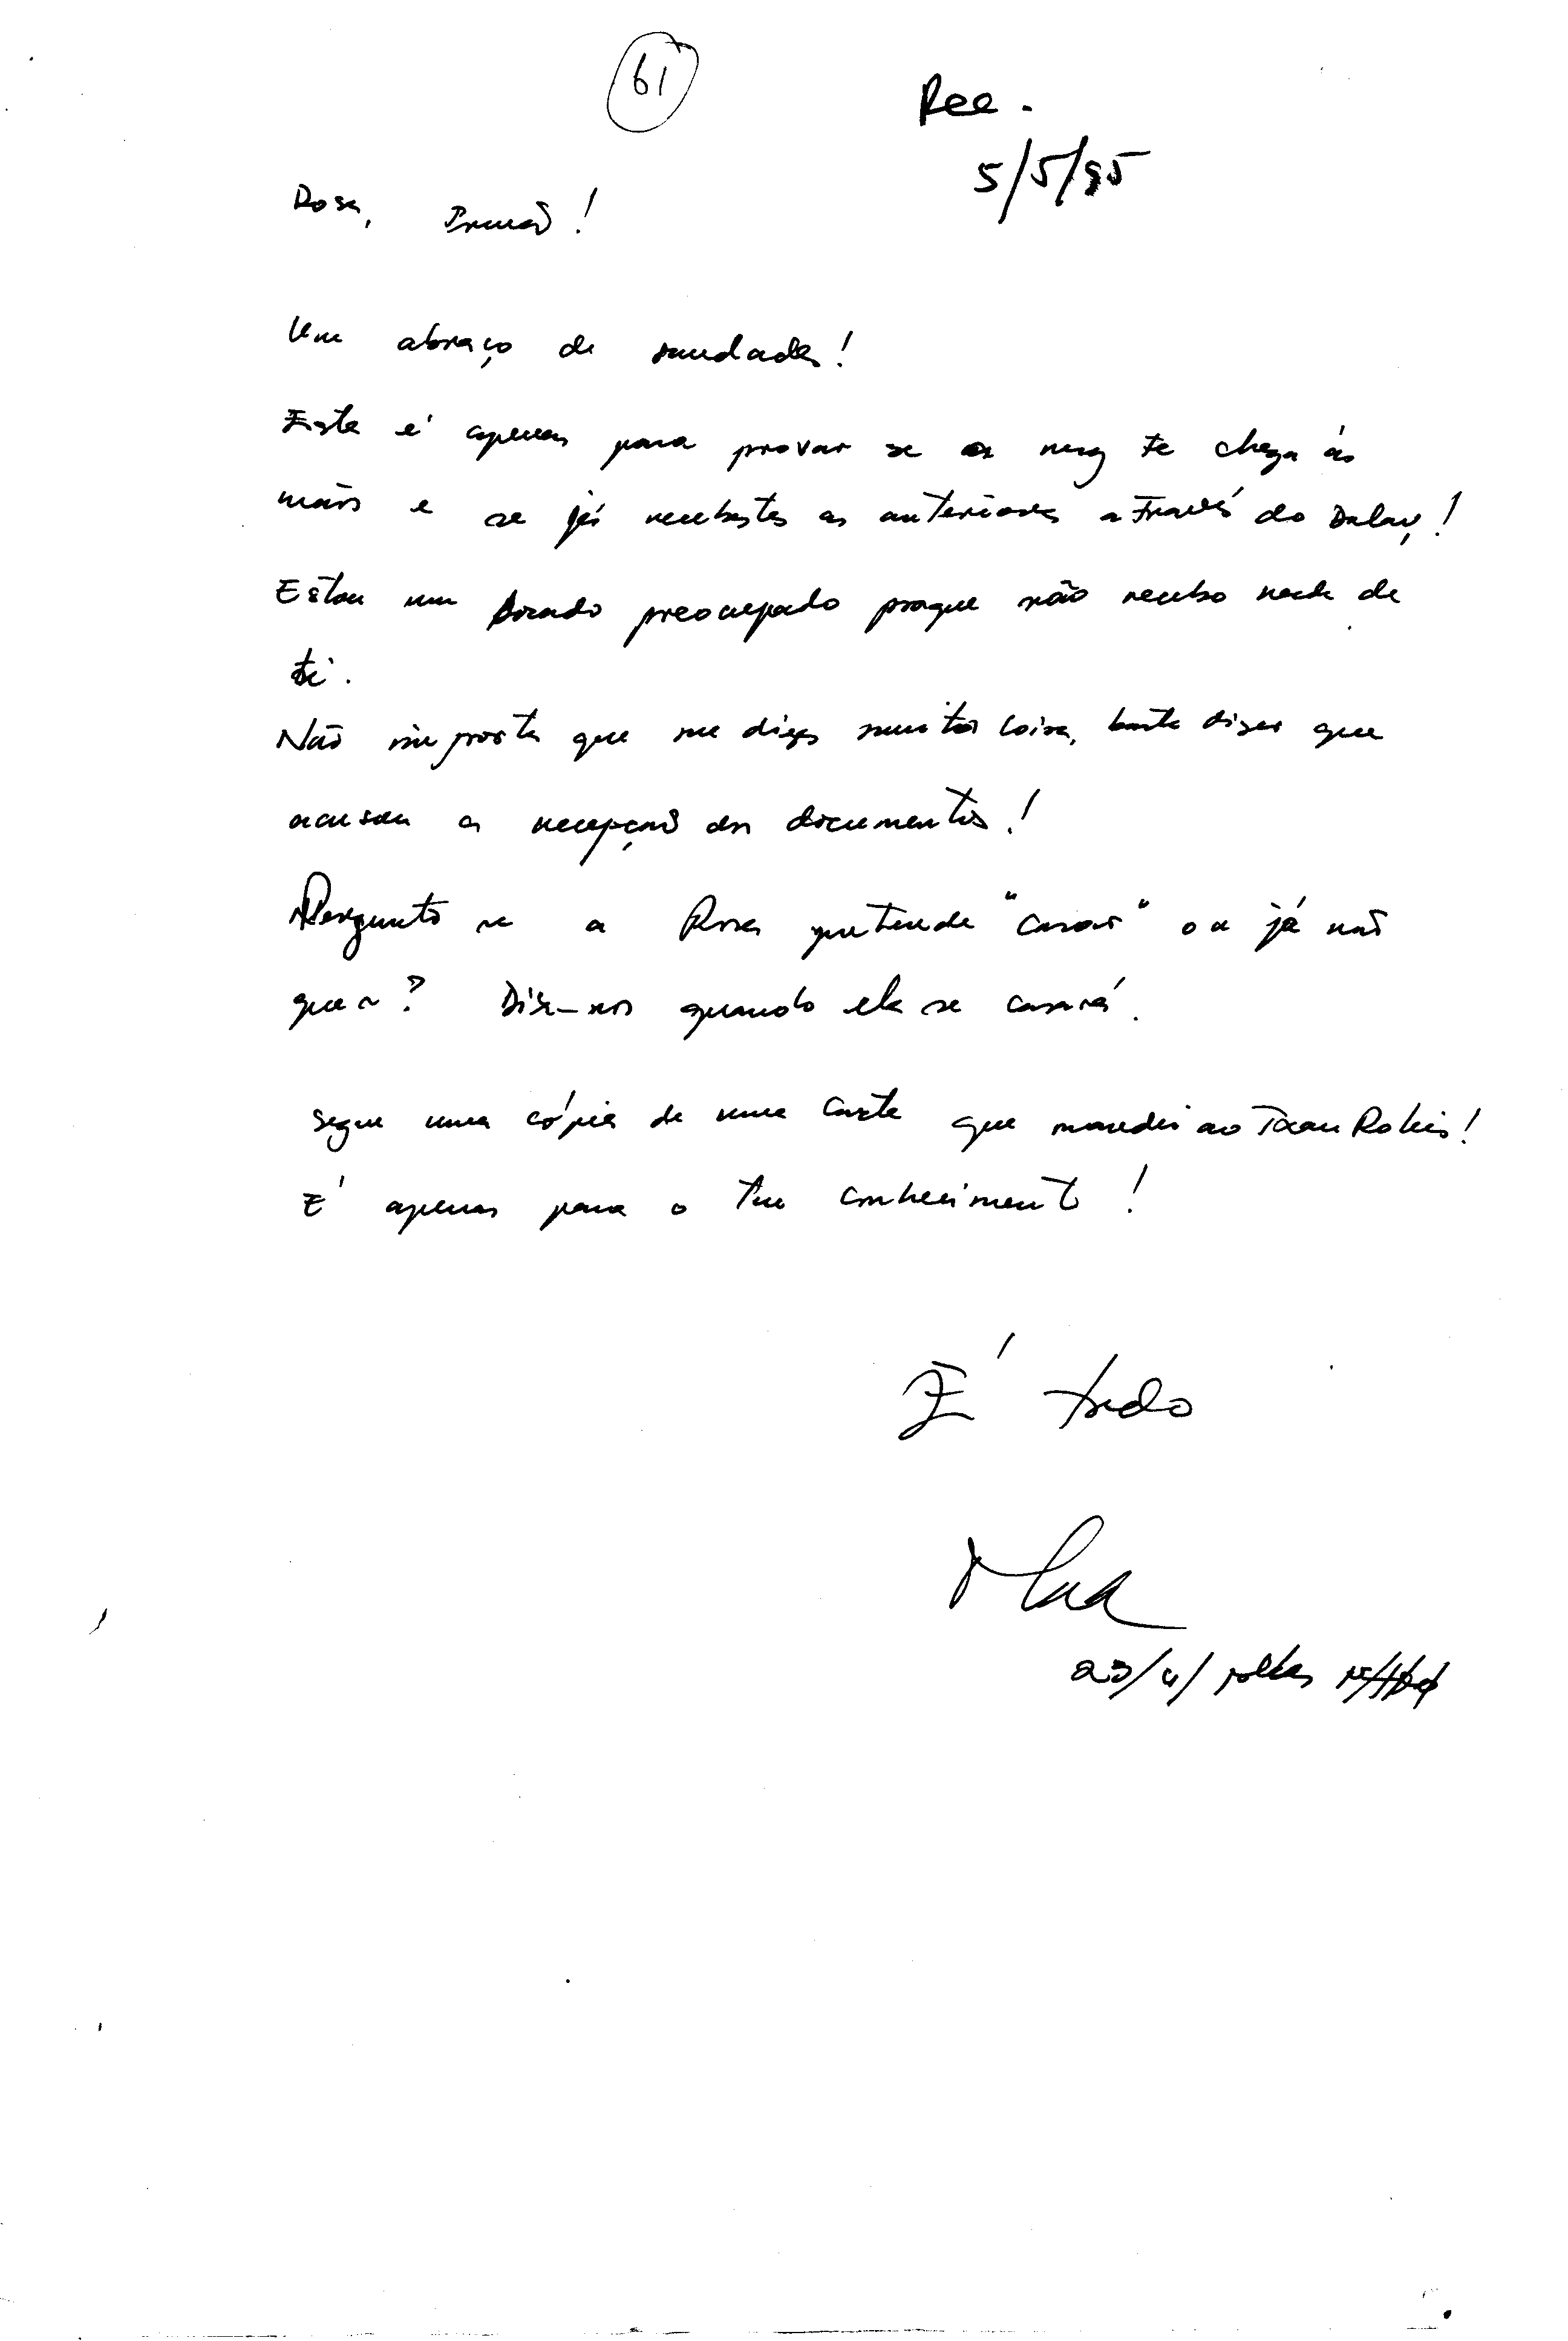 61
Rec.
5/5/95
Rosa, Irmão!
Um abraço de saudades!
Este é apenas para provar se a msg te chega ás
mãos e se já recebestes as anteriores através do Dalaç!
Estou um bocado preocupado porque não recebo nada de
ti.
Não importa que me digas muita coisa, basta dizer que
acusou a recepção dos documentos!
Pergunto se a Rosa pretende "casar" ou já não
quer? Diz-nos quando ela se casará.
Segue uma cópia de uma carta que mandei ao Taur !
É apenas para o teu conhecimento!
É tudo
23/4/